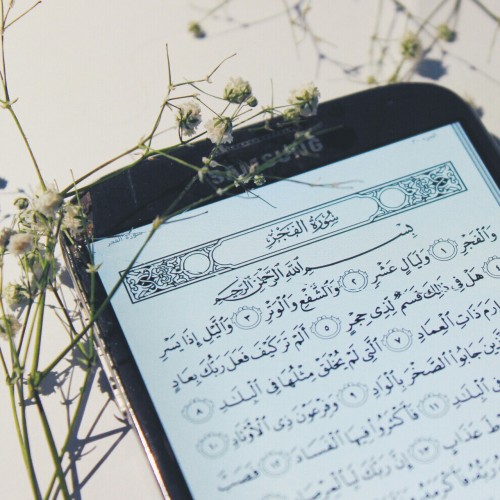 SAMSUNG
سُورَةُ الفَجْرِ
بِسْمِ اللَّهِ الرَّحْمَٰنِ الرَّحِيمِ
وَالْفَجْرِ ١ وَلَيَالٍ عَشْرٍ ٢ وَالشَّفْعِ وَالْوَتْرِ ٣ وَاللَّيْلِ إِذَا يَسْرِ
هَلْ فِي ذَٰلِكَ قَسَمٌ لِّذِي حِجْرٍ ٥ أَلَمْ تَرَ كَيْفَ فَعَلَ رَبُّكَ بِعَادٍ
ذَاتِ الْعِمَادِ ٧ الَّتِي لَمْ يُخْلَقْ مِثْلُهَا فِي الْبِلَادِ ٨
جَابُوا الصَّخْرَ بِالْوَادِ ٩ وَفِرْعَوْنَ ذِي الْأَوْتَادِ ١٠
الْبِلَادِ ١١ فَأَكْثَرُوا فِيهَا الْفَسَادَ ١٢ فَصَبَّ
عَذَابٍ ١٣ إِنَّ رَبَّكَ